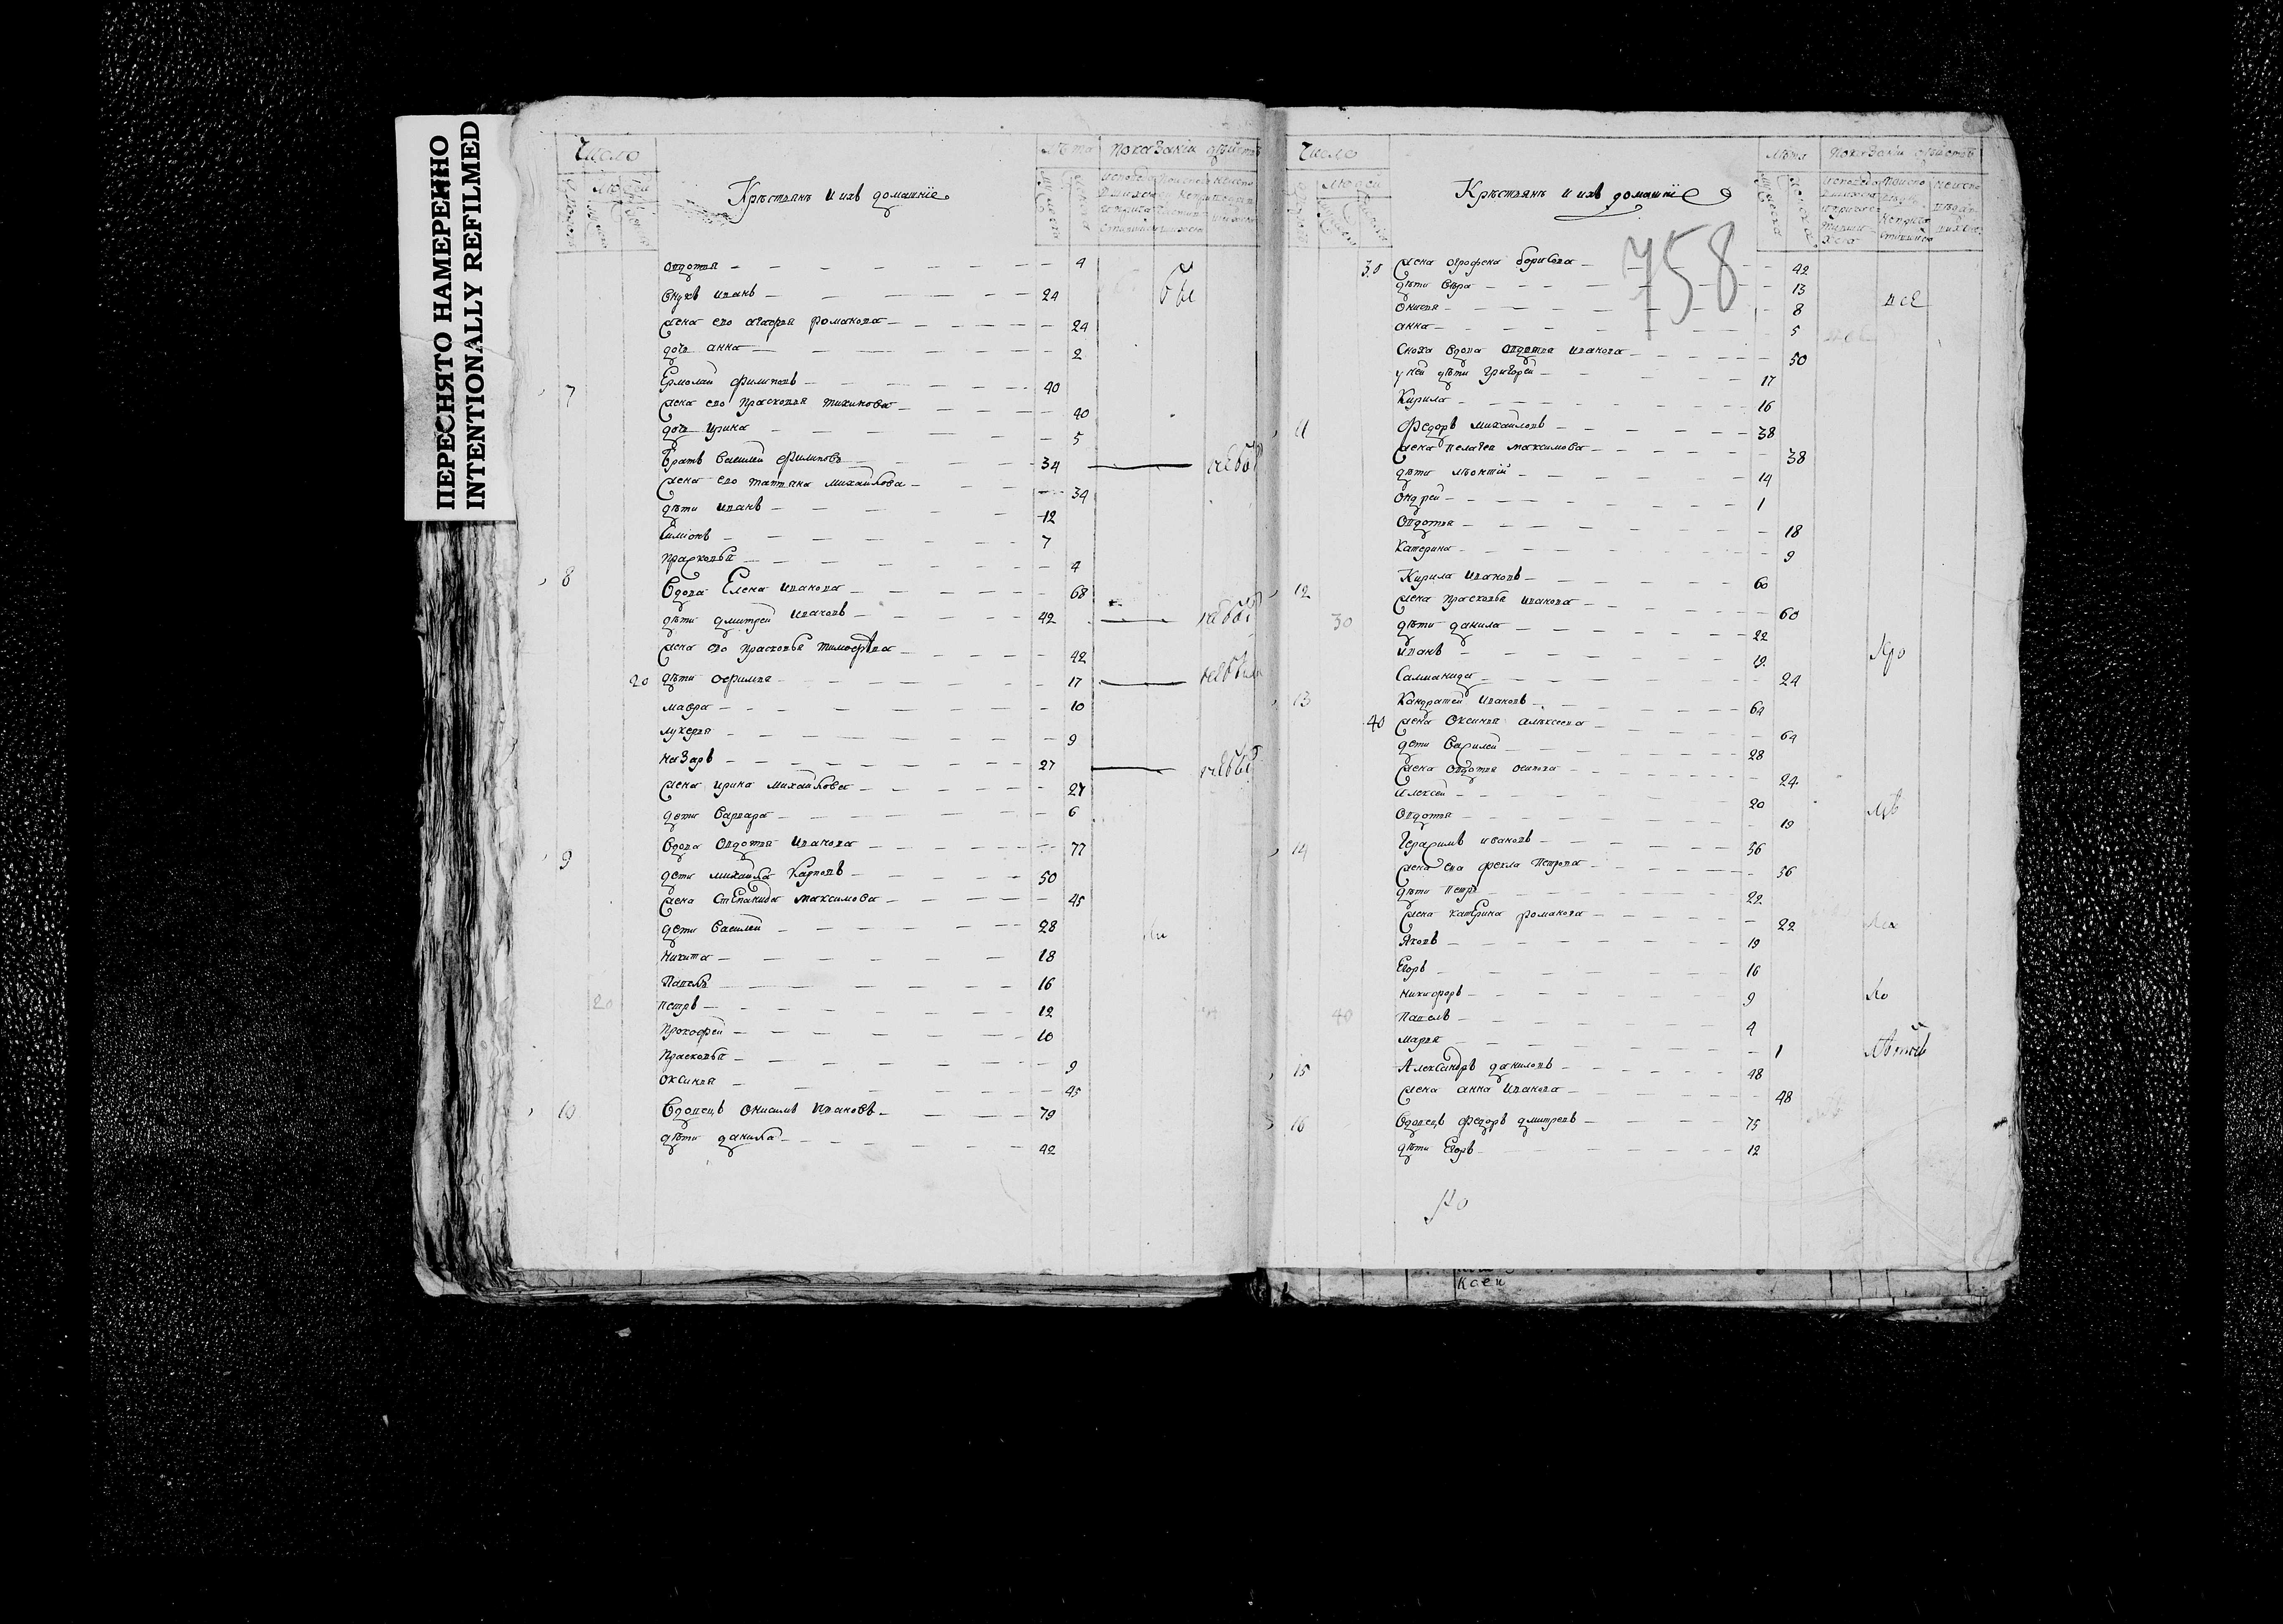 ПЕРЕСНЯТО НАМЕРЕННО
INTENTIONALLY REFILMED
Число
Лѣта
Показанїи дѣйств
Людей
Крѣстьянъ и ихъ домашнїе
Овдотья 4
Внукъ иванъ 24
жена ево агафья романова 24
дочь анна 2
7 Ермолай филиповъ 40
жена ево Прасковья тихинова 40
дочь ирина 5
Братъ василей филиповъ 34
жена ево татьяна михайлова 34
дѣти иванъ 12
Симїонъ 7
Прасковья 4
8 Вдова Елена иванова 68
дѣти дмитрей ивановъ 42
жена ево Прасковья тимофѣва 42
20 дѣти офимья 17
мавра 10
лукерья 9
назаръ 27
жена ирина михайлова 27
дети варвара 6
9 Вдова Овдотья иванова 77
дети михайла карповъ 50
жена степанида максимова 45
дети василей 28
никита 18
Павелъ 16
20 петръ 12
Прокофей 10
Прасковья 9
оксинья 45
10 Вдовецъ онисимъ ивановъ 79
дѣти данила 42
Число
Лѣта
Показанїи дѣйств
Людей
Крѣстьянъ и ихъ домашнїе
758
30 жена огрофена борисова 42
дѣти вѣра 13
Онисья 8
анна 5
Сноха вдова овдотья иванова 50
у ней дѣти григорей 17
Кирила 16
11 Федоръ михайловъ 38
жена пелагея максимова 38
дѣти лѣонтїй 14
ондрей 1
Овдотья 18
Катерина 9
12 Кирила ивановъ 60
жена прасковья иванова 60
30 дѣти данила 22
иванъ 19
Саманида 24
13 Кандратей ивановъ 64
40 жена оксинья алѣксеева 64
дети василей 28
жена овдотья осипова 24
алексей 20
Овдотья 19
14 Герасимъ ивановъ 56
жена ево фекла петрова 56
дѣти петръ 22
жена катерина романова 22
Яковъ 19
Егоръ 16
никифоръ 9
40 Павелъ 4
марья 1
15 Александръ даниловъ 48
жена анна иванова 48
16 Вдовецъ федоръ дмитревъ 75
дѣти Егоръ 12